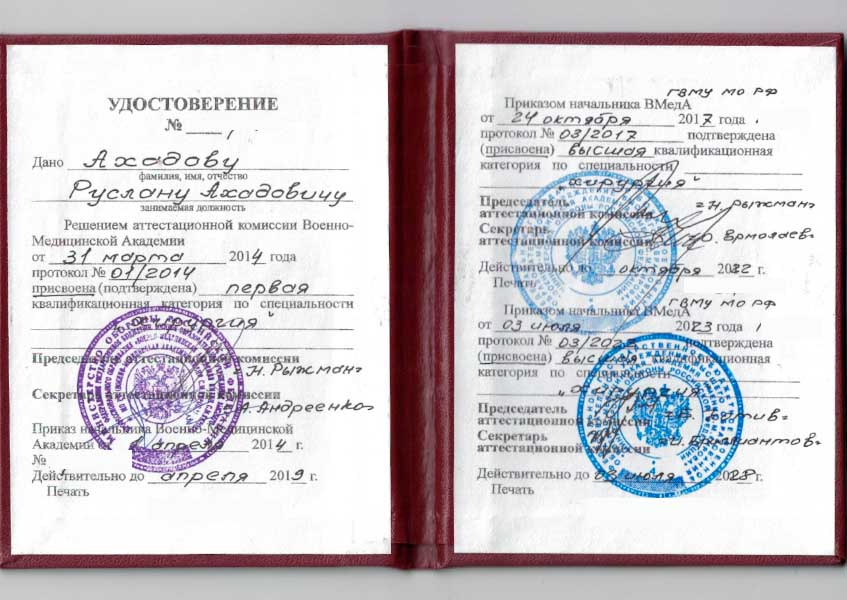 УДОСТОВЕРЕНИЕ
№
Дано Ахадову
фамилия, имя, отчество
Руслану Ахадовичу
занимаемая должность
Решением аттестационной комиссии Военно-
Медицинской Академии
от 31 марта 2014 года
протокол № 01/2014
присвоена (подтверждена) первая
квалификационная категория по специальности
"хирургия"
Председатель аттестационной комиссии
Н. Рыжман
Секретарь аттестационной комиссии
А. Андреенко
Приказ начальника Военно-Медицинской
Академии от 1 апреля 2014 г.
№
Действительно до апреля 2019 г.
Печать
ГВМУ МО РФ
Приказом начальника ВМедА
от 24 октября 2017 года
протокол № 03/2017 подтверждена
(присвоена) высшая квалификационная
категория по специальности
"хирургия"
Председатель
аттестационной комиссии Н. Рыжман
Секретарь
аттестационной комиссии Ю. Ермолаев
Действительно до октября 2022 г.
Печать
ГВМУ МО РФ
Приказом начальника ВМедА
от 03 июля 2023 года
протокол № подтверждена
(присвоена) высшая квалификационная
категория по специальности
"хирургия"
Председатель
аттестационной комиссии
Секретарь
аттестационной комиссии
Действительно до 03 июля 2028 г.
Печать